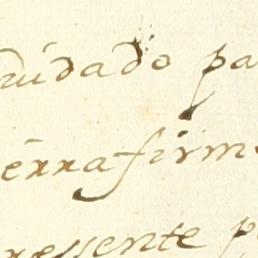 cuidado pa
errafirme
ressente p